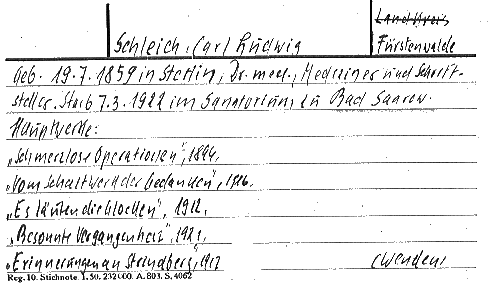 Landkreis
Schleich, Carl Ludwig
Fürstenwalde
Geb. 19.7.1859 in Stettin, Dr. med., Mediziner und Schrift-
steller. Starb 7.3.1922 im Sanatorium zu Bad Saarow.
Hauptwerke:
„Schmerzlose Operationen", 1894.
„Vom Schaltwerk der Gedanken", 1916.
„Es läuten die Glocken", 1912.
„Besonnte Vergangenheit", 1921.
„Erinnerungen an Strindberg", 1917
(Wenden)
Reg. 10. Stichnote. I. 50. 232000. A. 803. S. 4062